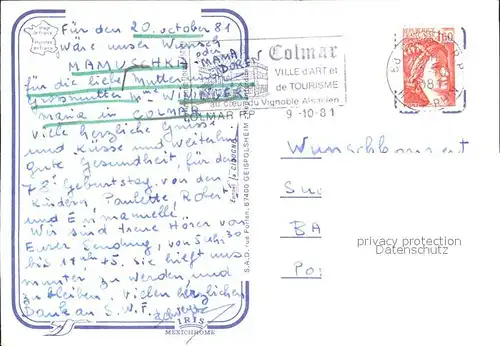 Für den 20. october 81
wäre unser Wunsch
MAMUSCHKA oder MAMA
für die liebe Mutter und
Grossmutter Me WININGER
Maria in COLMAR
Viele herzliche Grüsse
und Küsse und Weiterhin
gute Gesundheit, für den
78. Geburtstag. von den
Kindern, Paulette, Robert
und Emmanuelle.
Wir sind treue Hörer von
Eurer Sendung, von 5 uhr 30
bis 11 uhr 45. Sie hilft uns
munter zu werden, und
zu bleiben. Vielen herzlichen
Dank an S.W.F.
IRIS
MEXICHROME
S.A.D. rue Forlen, 67400 GEISPOLSHEIM
Colmar
VILLE d'ART et
de TOURISME
au creux du Vignoble Alsacien
COLMAR R.P 9-10-81
1,60
Wunschkonzert
Su
BA
Po
privacy protection
Datenschutz